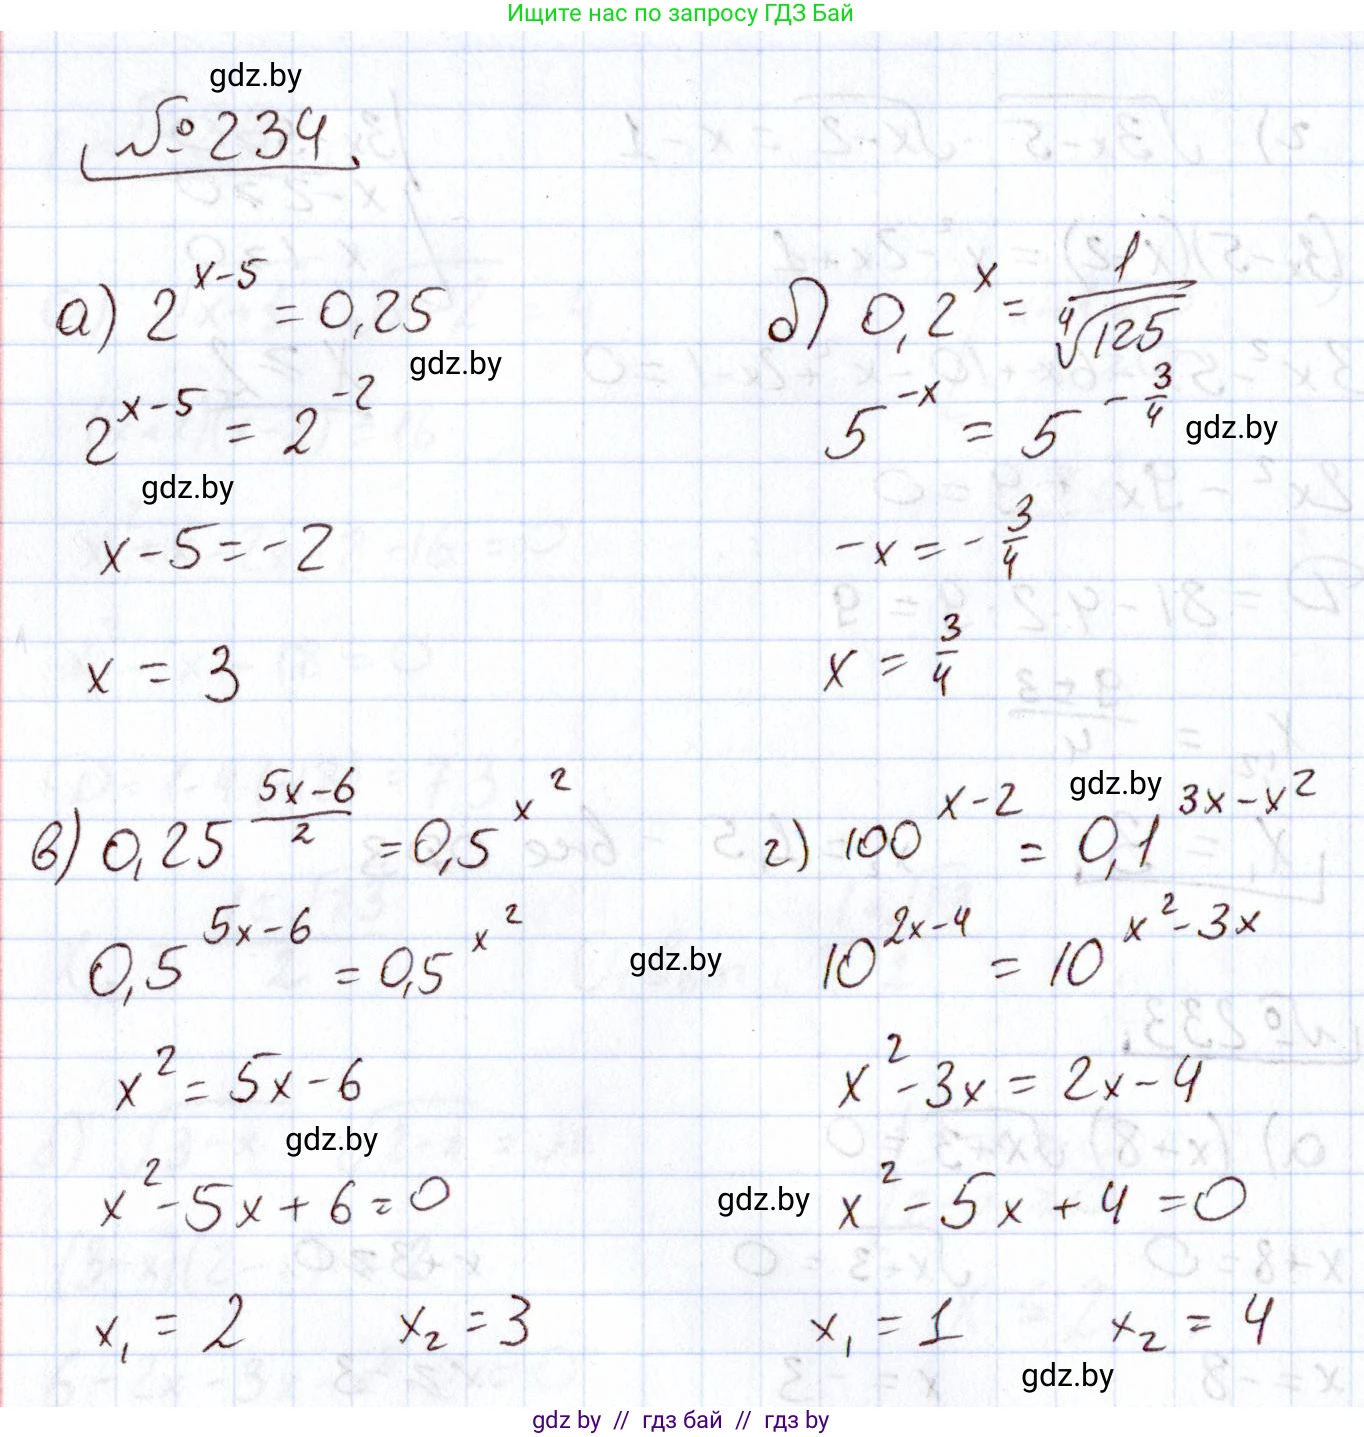 Ищите нас по запросу ГДЗ Бай
gdz.by
№234
а) 2^{x-5} = 0,25
gdz.by
2^{x-5} = 2^{-2}
gdz.by
x-5=-2
x = 3
б) 0,2^x = \frac{1}{\sqrt[4]{125}}
5^{-x} = 5^{-\frac{3}{4}}
gdz.by
-x = -\frac{3}{4}
x = \frac{3}{4}
в) 0,25^{\frac{5x-6}{2}} = 0,5^{x^2}
0,5^{5x-6} = 0,5^{x^2}
gdz.by
x^2 = 5x-6
gdz.by
x^2-5x+6=0
x_1 = 2 x_2 = 3
gdz.by
г) 100^{x-2} = 0,1^{3x-x^2}
10^{2x-4} = 10^{x^2-3x}
x^2-3x = 2x-4
gdz.by
x^2-5x+4=0
x_1 = 1 x_2 = 4
gdz.by
gdz.by // гдз бай // gdz.by